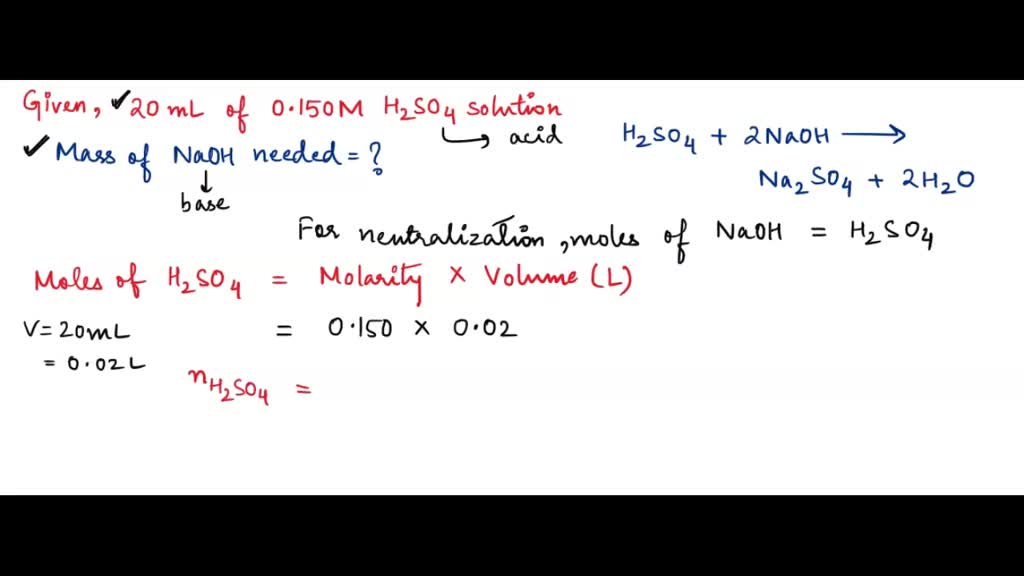 Given, ✓20 mL of 0.150M H₂SO₄ solution
↳ acid
✓ Mass of NaOH needed = ?
↓
base
H₂SO₄ + 2NaOH ⟶
Na₂SO₄ + 2H₂O
For neutralization, moles of NaOH = H₂SO₄
Moles of H₂SO₄ = Molarity × Volume (L)
V = 20mL
= 0.150 × 0.02
= 0.02L
nH₂SO₄ =